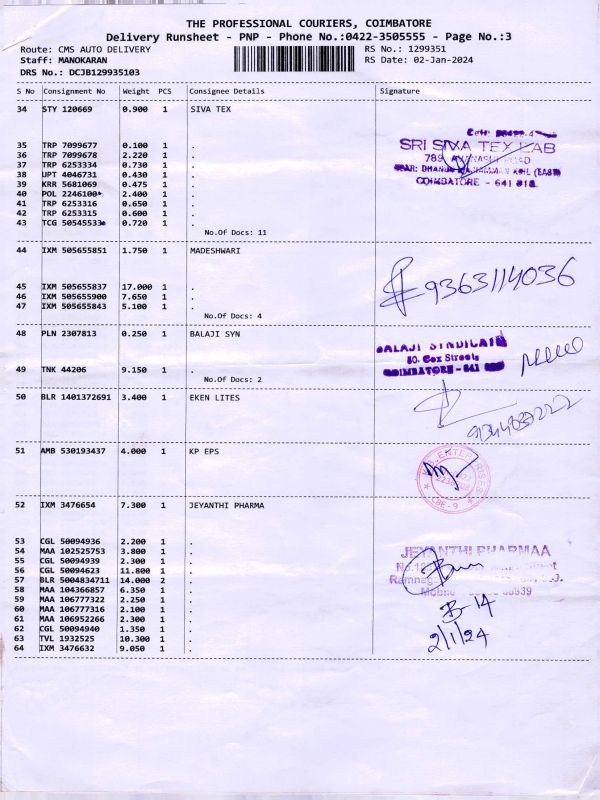 THE PROFESSIONAL COURIERS, COIMBATORE
Delivery Runsheet - PNP - Phone No.:0422-3505555 - Page No.:3
Route: CMS AUTO DELIVERY RS No.: 1299351
Staff: MANOKARAN RS Date: 02-Jan-2024
DRS No.: DCJB129935103
S No Consignment No Weight PCS Consignee Details Signature
34 STY 120669 0.900 1 SIVA TEX
35 TRP 7099677 0.100 1 .
36 TRP 7099678 2.220 1 .
37 TRP 6253334 0.730 1 .
38 UPT 4046731 0.430 1 .
39 KRR 5681069 0.475 1 .
40 POL 2246100 2.400 1 .
41 TRP 6253316 0.650 1 .
42 TRP 6253315 0.600 1 .
43 TCG 50545533 0.720 1 .
No.Of Docs: 11
SRI SIVA TEX LAB
789, AVANASHI ROAD
COIMBATORE - 641 018.
44 IXM 505655851 1.750 1 MADESHWARI
45 IXM 505655837 17.000 1 .
46 IXM 505655900 7.650 1 .
47 IXM 505655843 5.100 1 .
No.Of Docs: 4
9363114036
48 PLN 2307813 0.250 1 BALAJI SYN
49 TNK 44206 9.150 1 .
No.Of Docs: 2
BALAJI SYNDICATE
80, Cox Streets
COIMBATORE - 641
50 BLR 1401372691 3.400 1 EKEN LITES
51 AMB 530193437 4.000 1 KP EPS
ENTERPRISES
CBE-9
52 IXM 3476654 7.300 1 JEYANTHI PHARMA
53 CGL 50094936 2.200 1 .
54 MAA 102525753 3.800 1 .
55 CGL 50094939 2.300 1 .
56 CGL 50094623 11.800 1 .
57 BLR 5004834711 14.000 2 .
58 MAA 104366857 6.350 1 .
59 MAA 106777322 2.250 1 .
60 MAA 106777316 2.100 1 .
61 MAA 106952266 2.300 1 .
62 CGL 50094940 1.350 1 .
63 TVL 1932525 10.300 1 .
64 IXM 3476632 9.050 1 .
JEYANTHI PHARMAA
B-14
2/1/24